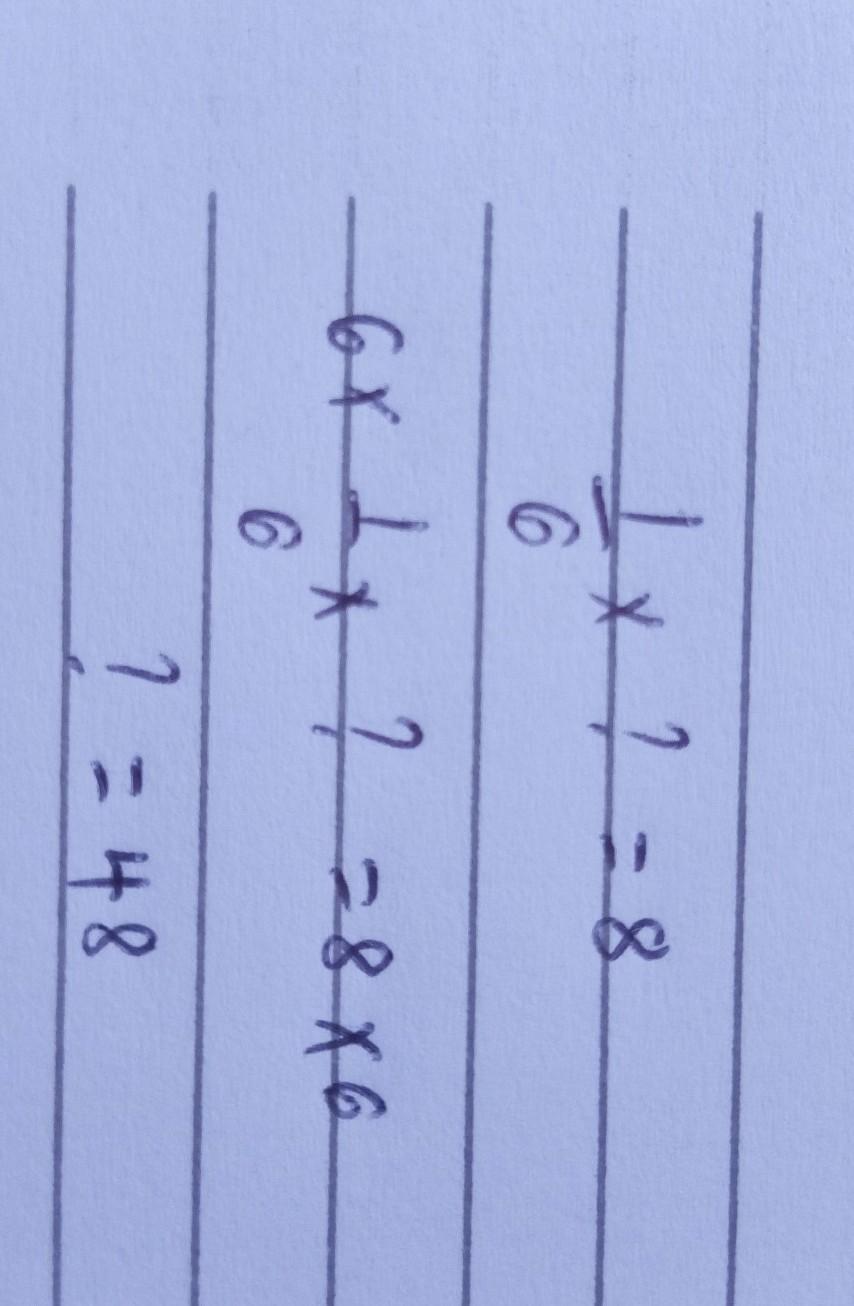 1/6 × ? = 8
6 × 1/6 × ? = 8 × 6
? = 48